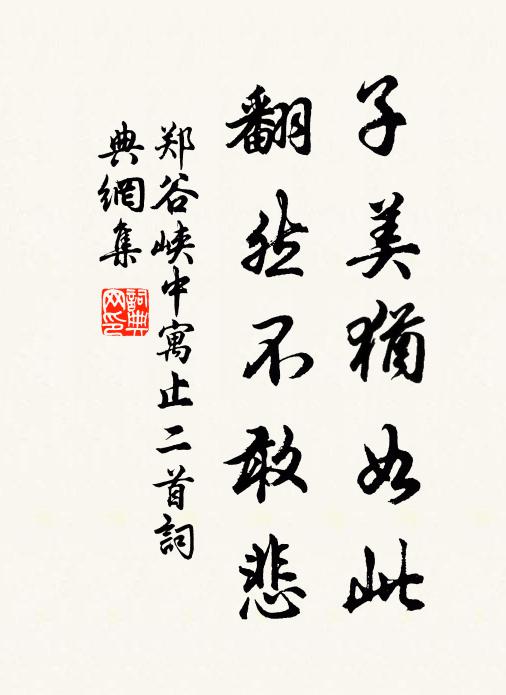 子美猶如此
翻然不敢悲
郑谷峽中寓止二首詞
典網集
詞典
网印